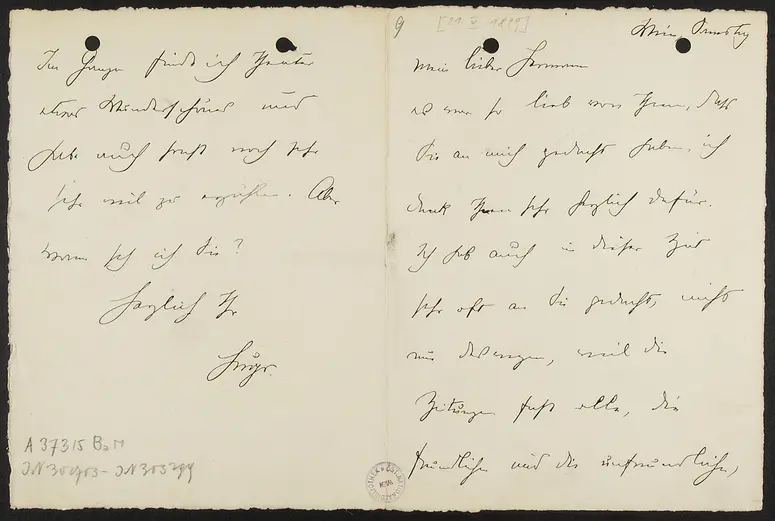 Im Ganzen finde ich
etwas Wunderschönes und
habe auch sonst noch sehr
sehr viel zu erzählen. Aber
wann seh ich Sie?
Herzlich Ihr
Hugo.
A 37315 BaM
9
Wien,
mein lieber Hermann
es war so lieb von Ihnen, dass
Sie an mich gedacht haben, ich
dank Ihnen sehr herzlich dafür.
Ich hab auch in dieser Zeit
sehr oft an Sie gedacht, nicht
nur deswegen, weil die
Zeitungen fast alle, die
freundlichen und die unfreundlichen,